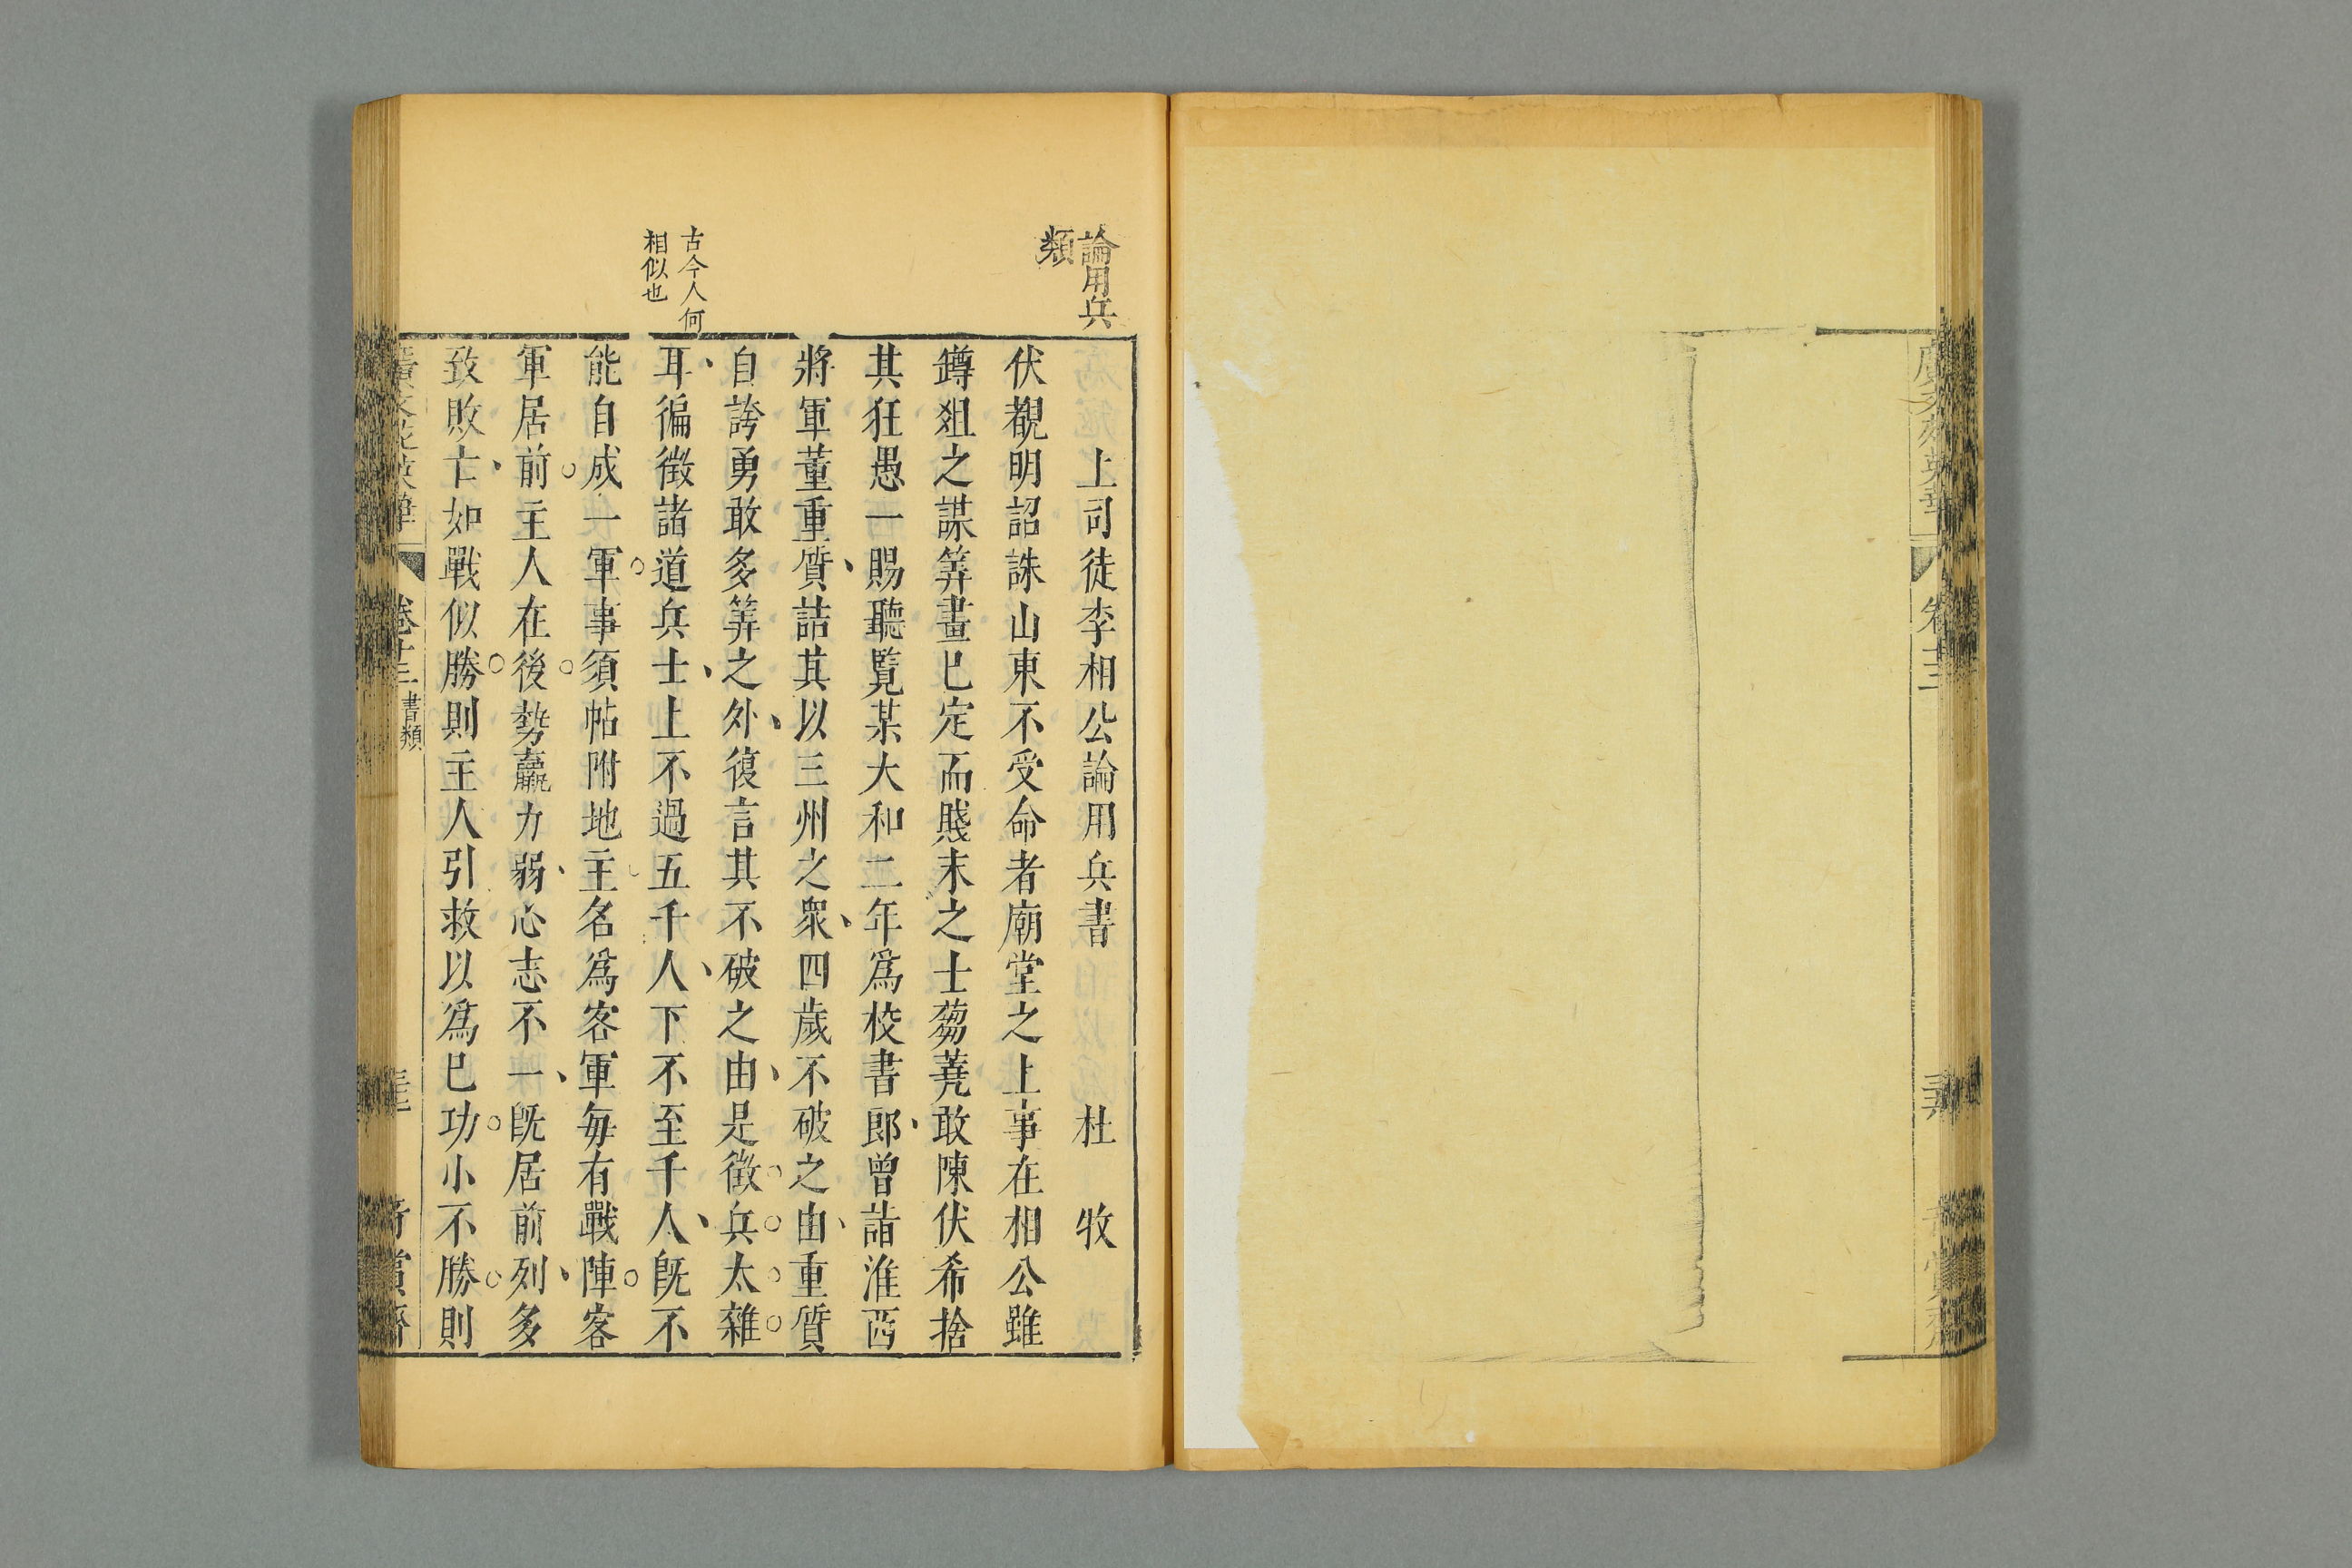 論用兵
類
上司徒李相公論用兵書 杜牧
伏覩明詔誅山東不受命者廟堂之上事在相公雖
鐏爼之謀筭畫已定而賤末之士蒭蕘敢陳伏希捨
其狂愚一賜聽覽某大和二年爲校書郎曾詣淮西
將軍董重質詰其以三州之衆四歲不破之由重質
自誇勇敢多筭之外復言其不破之由是徵兵太雜
古今人何
相似也
耳徧徴諸道兵士上不過五千人下不至千人旣不
能自成一軍事須帖附地主名爲客軍每有戰陣客
軍居前主人在後勢羸力弱心志不一旣居前列多
致敗亡如戰似勝則主人引救以爲已功小不勝則
卷廿三 書類